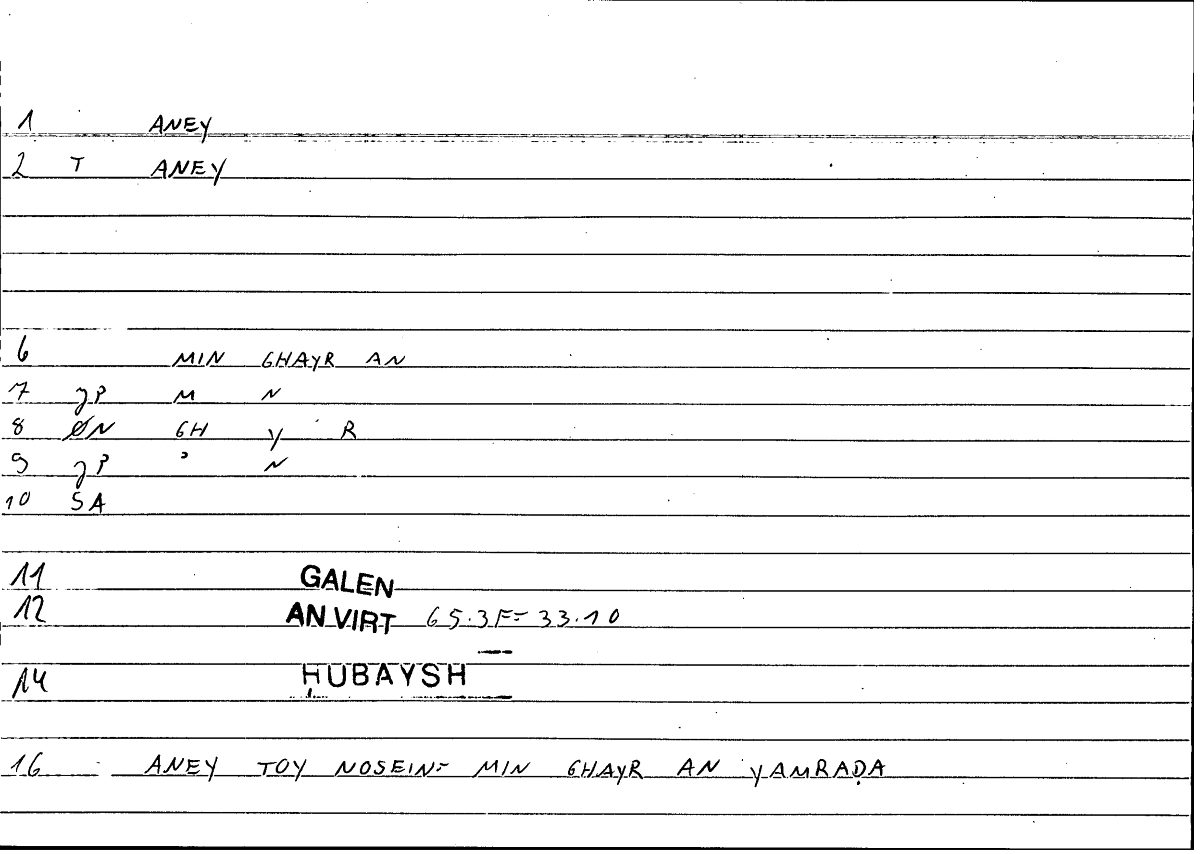 1 ANEY
2 T ANEY
6 MIN GHAYR AN
7 JP M N
8 ØN GH Y R
9 JP ' N
10 SA
11 GALEN
12 AN VIRT 65.3F= 33.10
14 HUBAYSH
16 ANEY TOY NOSEIN= MIN GHAYR AN YAMRAḌA